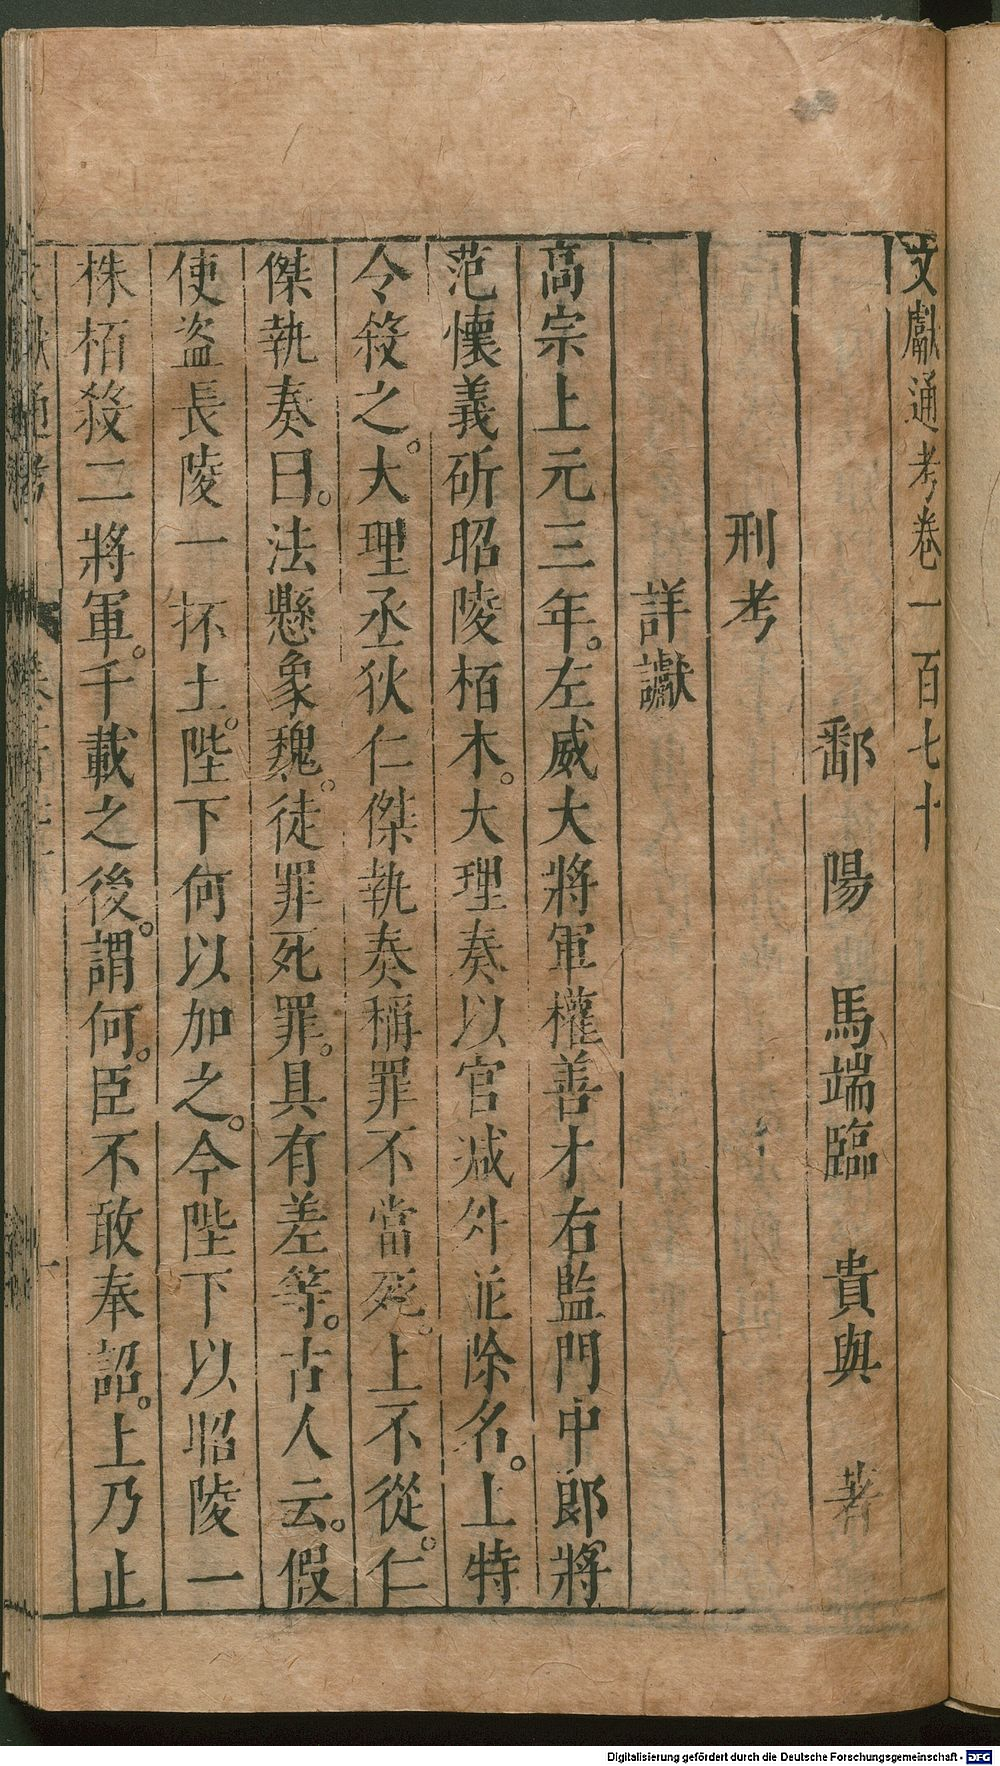 文獻通考卷一百七十
鄱陽馬端臨貴與著
刑考
詳讞
高宗上元三年。左威大將軍權善才右監門中郎將
范懷義斫昭陵栢木。大理奏以官减外並除名。上特
令殺之。大理丞狄仁傑執奏稱罪不當死。上不從。仁
傑執奏曰。法懸象魏。徒罪死罪。具有差等。古人云。假
使盗長陵一抔土。陛下何以加之。今陛下以昭陵一
株栢殺二將軍。千載之後。謂何。臣不敢奉詔。上乃止
Digitalisierung gefördert durch die Deutsche Forschungsgemeinschaft - DFG